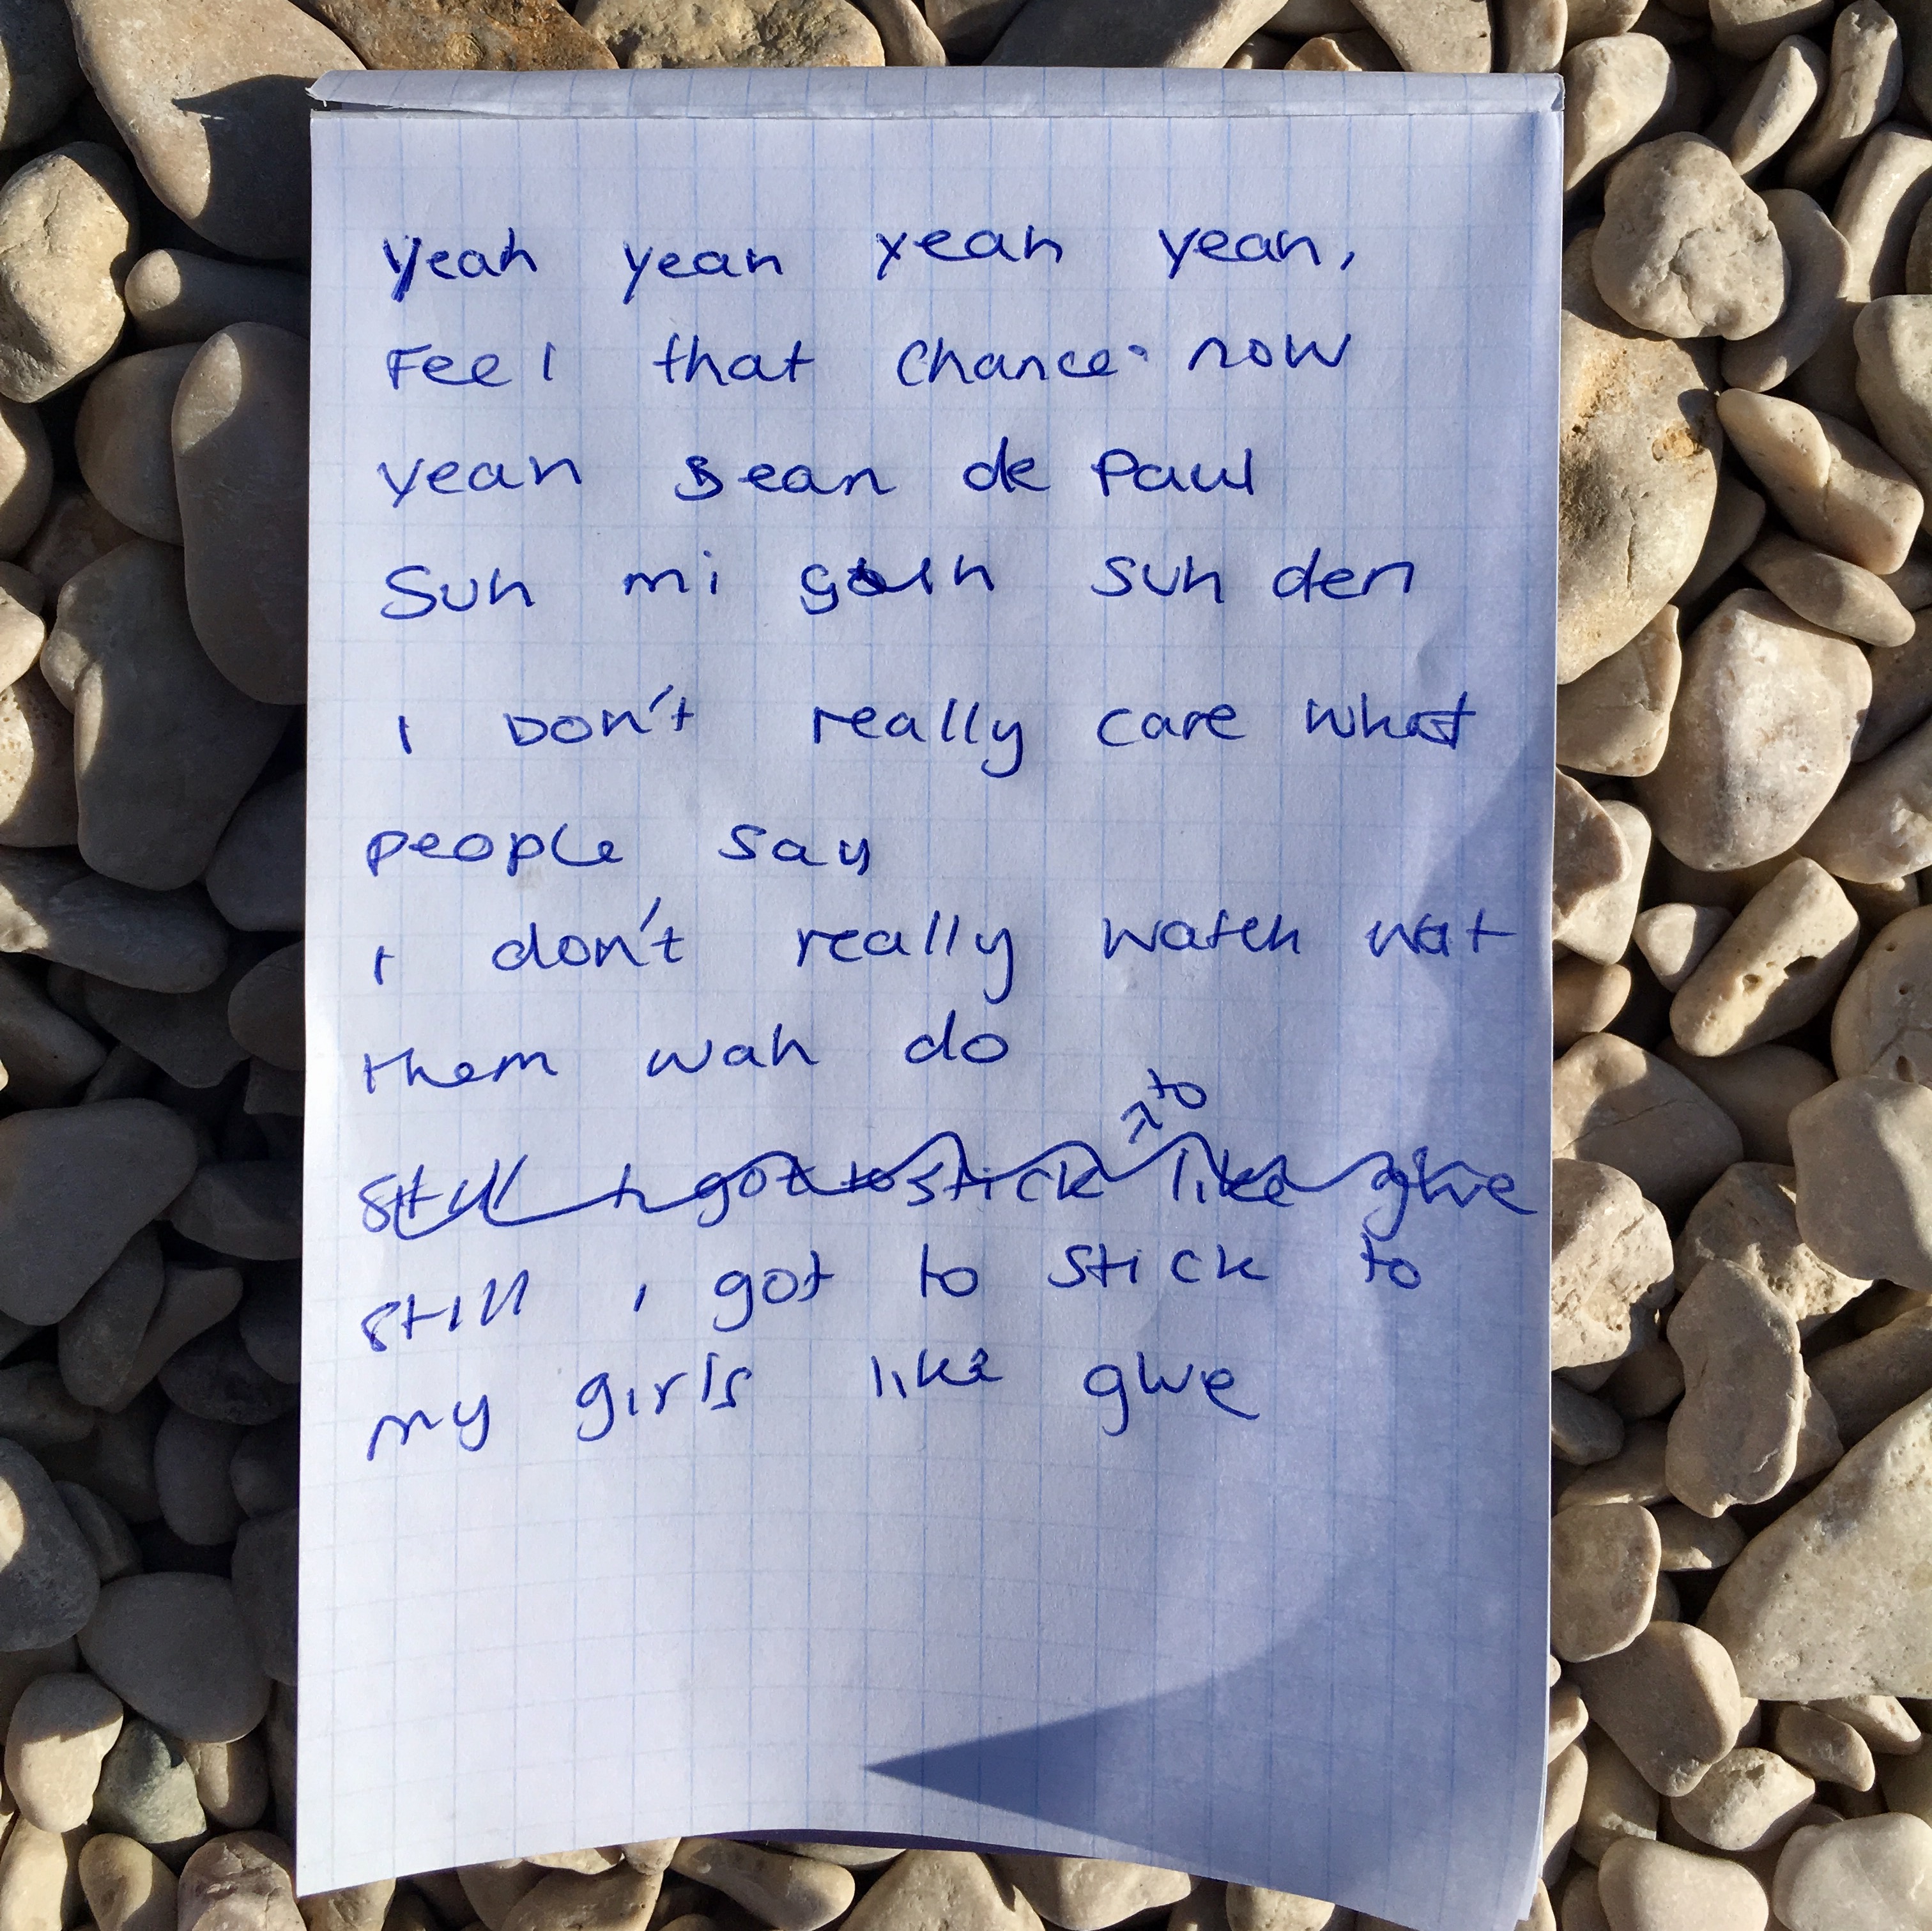 Yeah yeah yeah yeah,
Feel that chance now
yeah Sean de Paul
Suh mi goin suh den
I Don't really care what
people say
I don't really watch wat
them wah do
to
Still I got to stick like glue
Still I got to stick to
my girls like glue